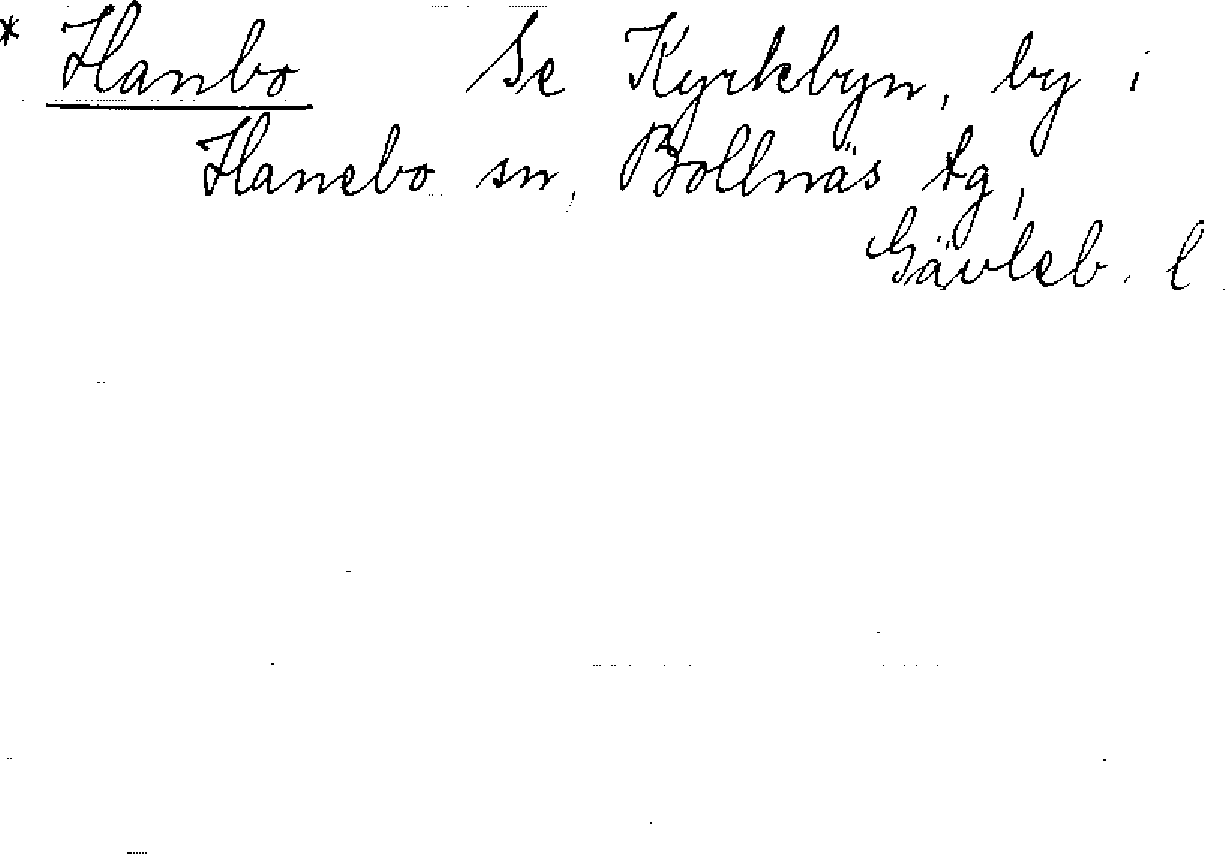 * Hanbo Se Kyrkbyn, by i
Hanebo sn, Bollnäs tg,
Gävleb. l.